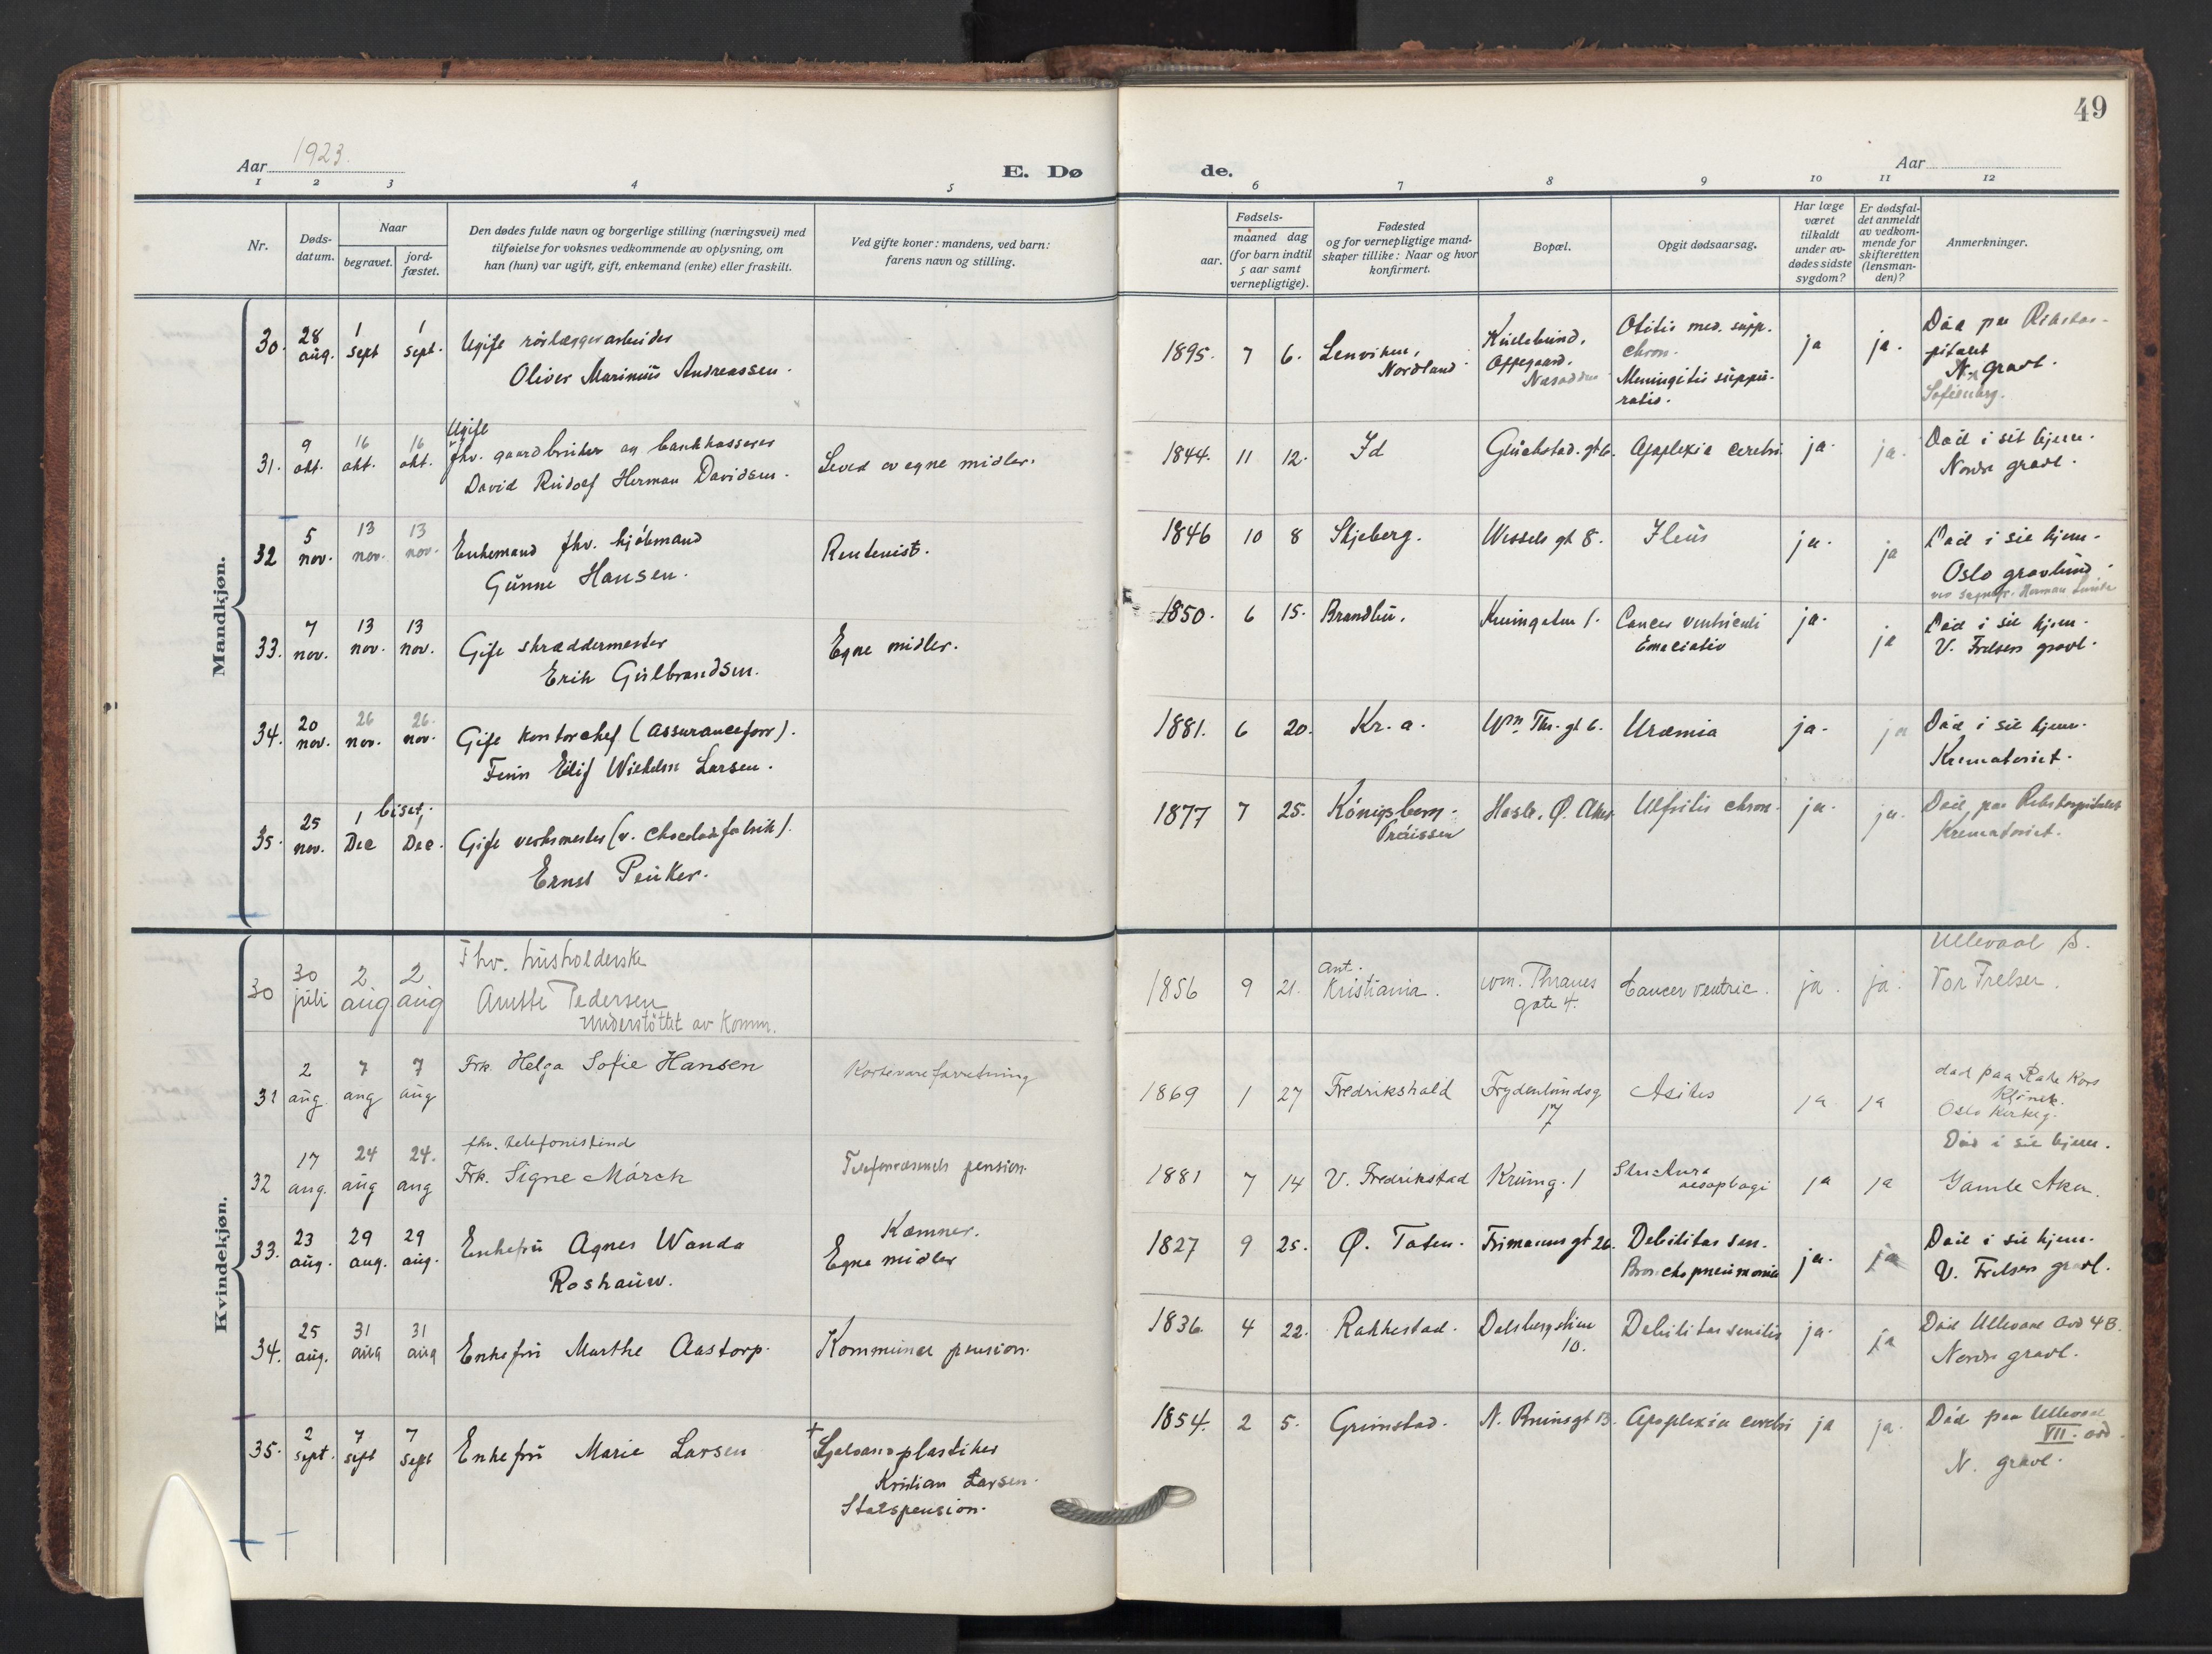 49
Aar 1923.
E. Dø
de.
Aar
1 2 3 4 5 6 7 8 9 10 11 12
Nr.
Døds-
datum.
Naar
begravet.
jord-
fæstet.
Den dødes fulde navn og borgerlige stilling (næringsvei) med
tilføielse for voksnes vedkommende av oplysning, om
han (hun) var ugift, gift, enkemand (enke) eller fraskilt.
Ved gifte koner: mandens, ved barn:
farens navn og stilling.
Fødsels-
aar.
maaned dag
(for barn indtil
5 aar samt
vernepligtige).
Fødested
og for vernepligtige mand-
skaper tillike: Naar og hvor
konfirmert.
Bopæl.
Opgit dødsaarsag.
Har læge
været
tilkaldt
under av-
dødes sidste
sygdom?
Er dødsfal-
det anmeldt
av vedkom-
mende for
skifteretten
(lensman-
den)?
Anmerkninger.
Mandkjøn.
30. 28 aug. 1 sept 1 sept. Ugift rörlæggerarbeider
Oliver Marinius Andreassen.
1895. 7 6. Lenviken, Nordland.
Oppegaard.
Otitis med. supp.
chron.
Meningitis suppu-
ja ja.
N. gravl.
Sofienberg.
31. 9 okt. 16 okt. 16 okt. Ugift
fhv. gaardbruker og bankkasserer
David Rudolf Herman Davidsen.
Leved av egne midler.
1844. 11 12. Id
Glückstad. gt 6. Apoplexia cerebri ja ja.
Död i sit hjem.
Nordre gravl.
32 5 nov. 13 nov. 13 nov. Enkemand fhv. kjöbmand
Gunne Hansen.
Rentenist.
1846 10 8 Skjeberg.
Wessels gt 8. Ileus ja. ja
Död i sit hjem.
Oslo gravlund.
33. 7 nov. 13 nov. 13 nov. Gift skræddermester
Erik Gulbrandsen.
Egne midler.
1850. 6 15. Brandbu.
Krumgaten 1. Cancer ventriculi
Emaciatio
ja. ja
Död i sit hjem.
V. Frelsers gravl.
34. 20 nov. 26 nov. 26. nov. Gift kontorchef (assuranceforr).
Finn Eilif Wilhelm Larsen.
1881. 6 20. Kr.a.
Wm. Thr. gt 6. Uræmia ja. ja
Död i sit hjem.
Krematoriet.
35. 25 nov. 1 Dec biset, 1 Dec. Gift verksmester (v. chocoladefabrik).
Ernst Peuker.
1877 7 25. Königsberg.
Preussen
Hasle. Ø. Aker. Nefritis chron. ja. ja.
Död paa Rikshospitalet
Krematoriet.
Kvindekjøn.
30 30 juli 2 aug 2 aug Fhv. husholderske
Anette Pedersen
Understöttet av Komm.
1856 9 21. Ant.
Kristiania.
Wm. Thranes
gate 4.
Cancer ventric. ja. ja.
Ullevaal S.
Vor Frelser.
31 2 aug. 7 aug 7 aug Frk. Helga Sofie Hansen
Kortevareforretning
1869 1 27 Fredrikshald
Frydenlundsg
17
Asites ja ja
död paa Røde Kors
Klinik.
Oslo Kirkeg.
32 17 aug. 24 aug 24. aug fhv. telefonistinde
Frk. Signe Mörch
Telefonvæsenets pension.
1881 7 14 V. Fredrikstad
Krumg. 1
Strictura
oesophagi
ja ja
Död i sit hjem.
Gamle Aker.
33. 23 aug. 29 aug. 29 aug. Enkefru Agnes Wanda
Roshauw.
Kæmner.
Egne midler
1827 9 25. Ø. Toten.
Frimanns gt 26. Debilitas sen.
Bronchopneumonia
ja. ja
Död i sit hjem.
V. Frelsers gravl.
34. 25 aug. 31 aug 31 aug Enkefru Marthe Aastorp.
Kommunal pension.
1836. 4 22. Rakkestad.
Dalsbergstien
10.
Debilitas senilis ja. ja
Död Ullevaal Avd 4B.
Nordre gravl.
35. 2 sept. 7 sept 7 sept Enkefru Marie Larsen
† Galvanoplastiker
Kristian Larsen.
Statspension.
1854. 2 5. Grimstad.
N. Bruunsgt 13. Apoplexia cerebri ja ja.
Död paa Ullevaal
VII. avd.
N. gravl.